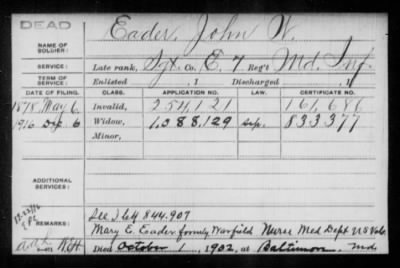 DEAD
Eader, John W.
NAME OF SOLDIER:
SERVICE: Late rank, Sgt. Co. E, 7 Reg't Md. Inf.
TERM OF SERVICE: Enlisted , 1 Discharged , 1
DATE OF FILING. CLASS. APPLICATION NO. CERTIFICATE NO.
1878 May 6 Invalid, 161,686
1916 6 Widow, 1,088,129 833377
Minor,
ADDITIONAL SERVICES:
REMARKS:
844.907
Mary E. Eader formerly Warfield Nurse Med Dept U S Vols.
Died October 1, 1902, at Baltimore, Md